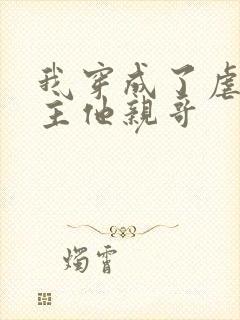 我穿成了虐
主他親哥
燭霄